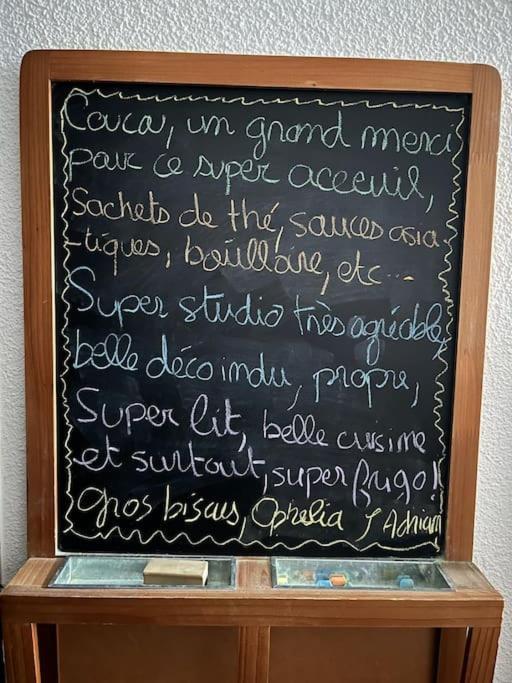 Coucou, un grand merci
pour ce super acceuil,
Sachets de thé, sauces asia-
-tiques, bouilloire, etc...
Super studio très agréable,
belle déco indu, propre,
Super lit, belle cuisine
et surtout, super frigo!
Gros bisous, Ophelia & Adrian